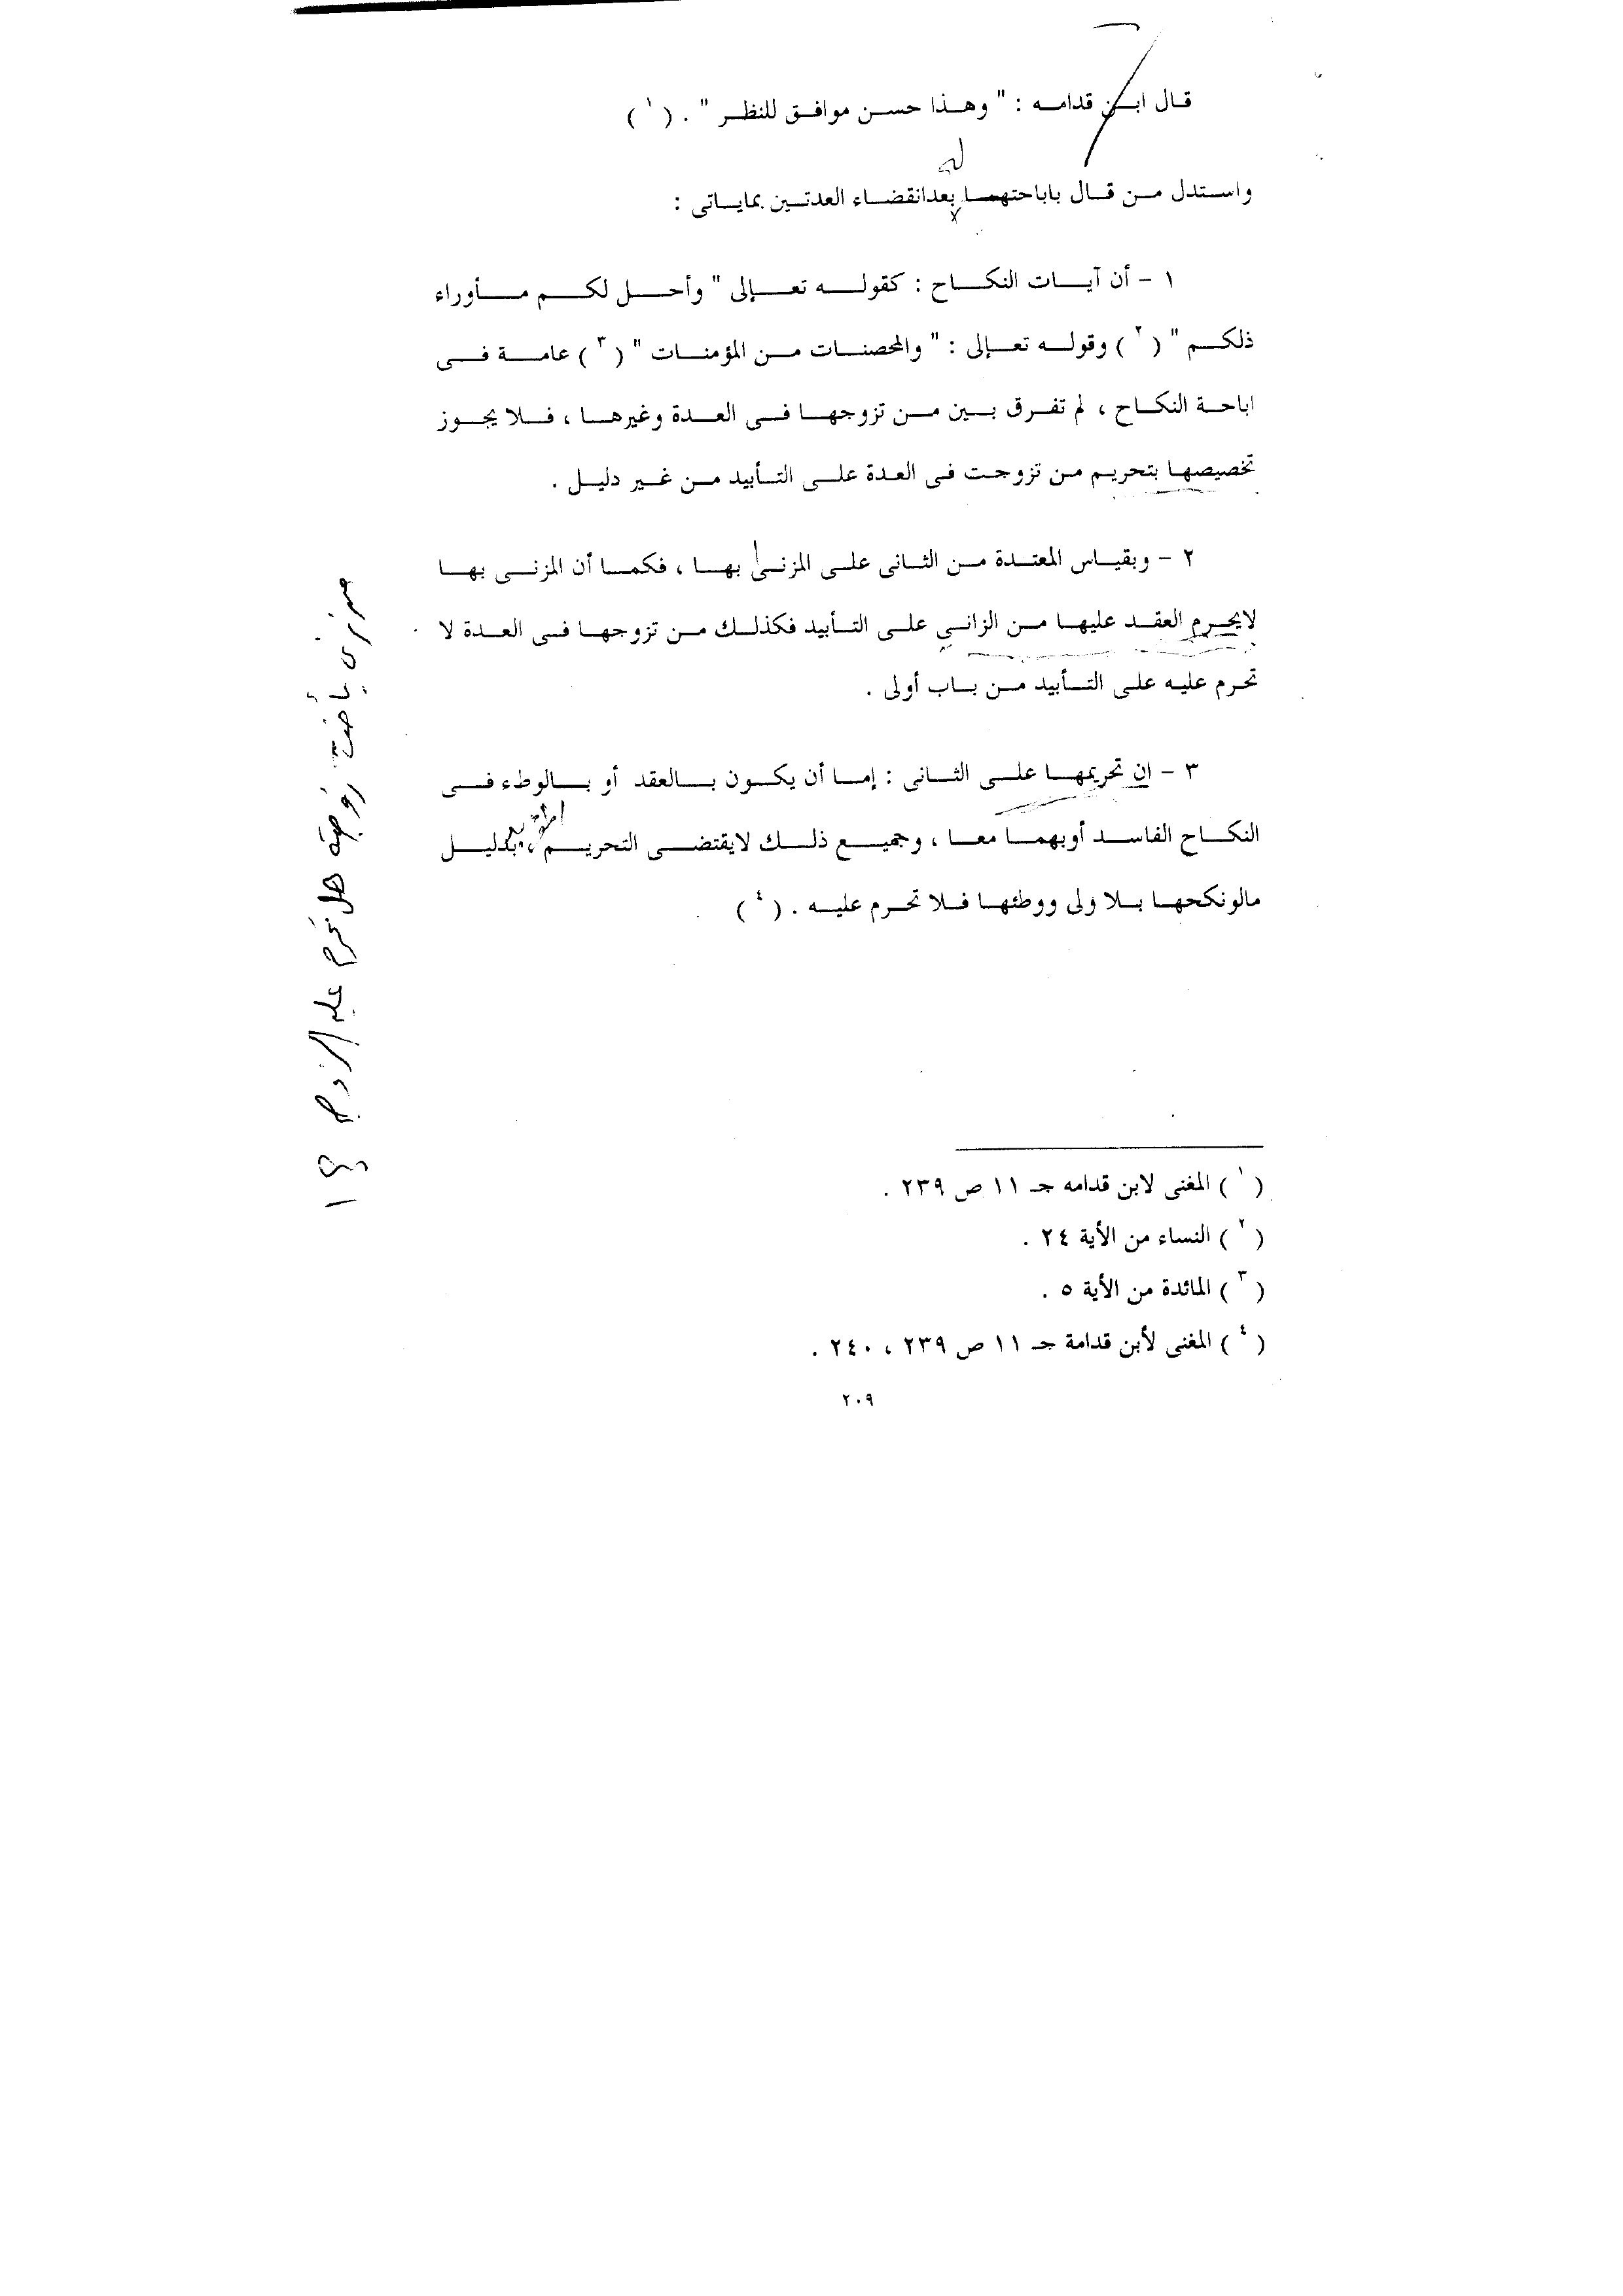 قال ابن قدامه : " وهذا حسن موافق للنظر " . ( ١ )
له
واستدل من قال باباحتهما بعدانقضاء العدتين بماياتى :
١ - أن آيات النكاح : كقوله تعإلى " وأحل لكم مأوراء
ذلكم " ( ٢ ) وقوله تعإلى : " والمحصنات من المؤمنات " ( ٣ ) عامة فى
اباحة النكاح ، لم تفرق بين من تزوجها فى العدة وغيرها ، فلا يجوز
تخصيصها بتحريم من تزوجت فى العدة على التأبيد من غير دليل .
٢ - وبقياس المعتدة من الثانى على المزنى بها ، فكما أن المزنى بها
لايحرم العقد عليها من الزانى على التأبيد فكذلك من تزوجها فى العدة لا
تحرم عليه على التأبيد من باب أولى .
٣ - ان تحريمها على الثانى : إما أن يكون بالعقد أو بالوطء فى
النكاح الفاسد أوبهما معا ، وجميع ذلك لايقتضى التحريم ، بدليل
مالونكحها بلا ولى ووطئها فلا تحرم عليه . ( ٤ )
من زنى بأخت زوجته هل تحرم عليه الزوجة ؟!
( ١ ) المغنى لابن قدامه جـ ١١ ص ٢٣٩ .
( ٢ ) النساء من الأية ٢٤ .
( ٣ ) المائدة من الأية ٥ .
( ٤ ) المغنى لأبن قدامة جـ ١١ ص ٢٣٩ ، ٢٤٠ .
٢٠٩